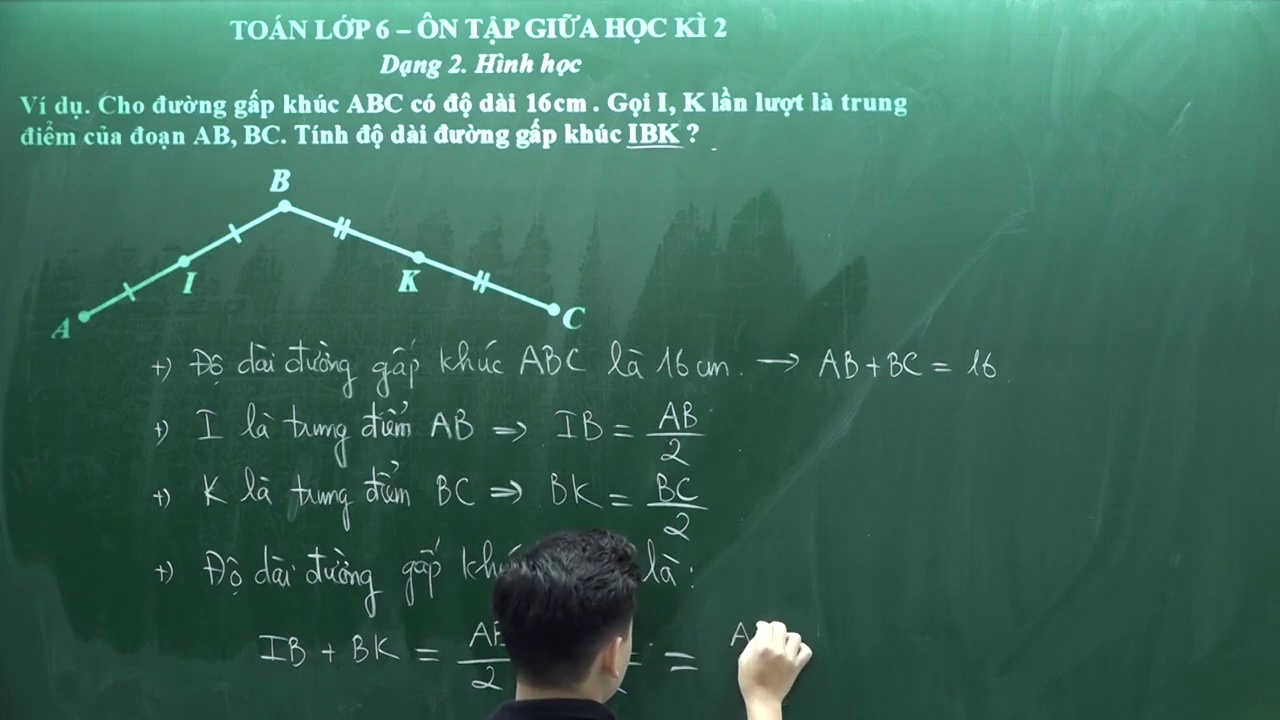 TOÁN LỚP 6 – ÔN TẬP GIỮA HỌC KÌ 2
Dạng 2. Hình học
Ví dụ. Cho đường gấp khúc ABC có độ dài 16cm . Gọi I, K lần lượt là trung
điểm của đoạn AB, BC. Tính độ dài đường gấp khúc IBK ?
B
I
K
A
C
+) Độ dài đường gấp khúc ABC là 16 cm. → AB + BC = 16
+) I là trung điểm AB ⇒ IB = AB/2
+) K là trung điểm BC ⇒ BK = BC/2
+) Độ dài đường gấp là:
IB + BK = =